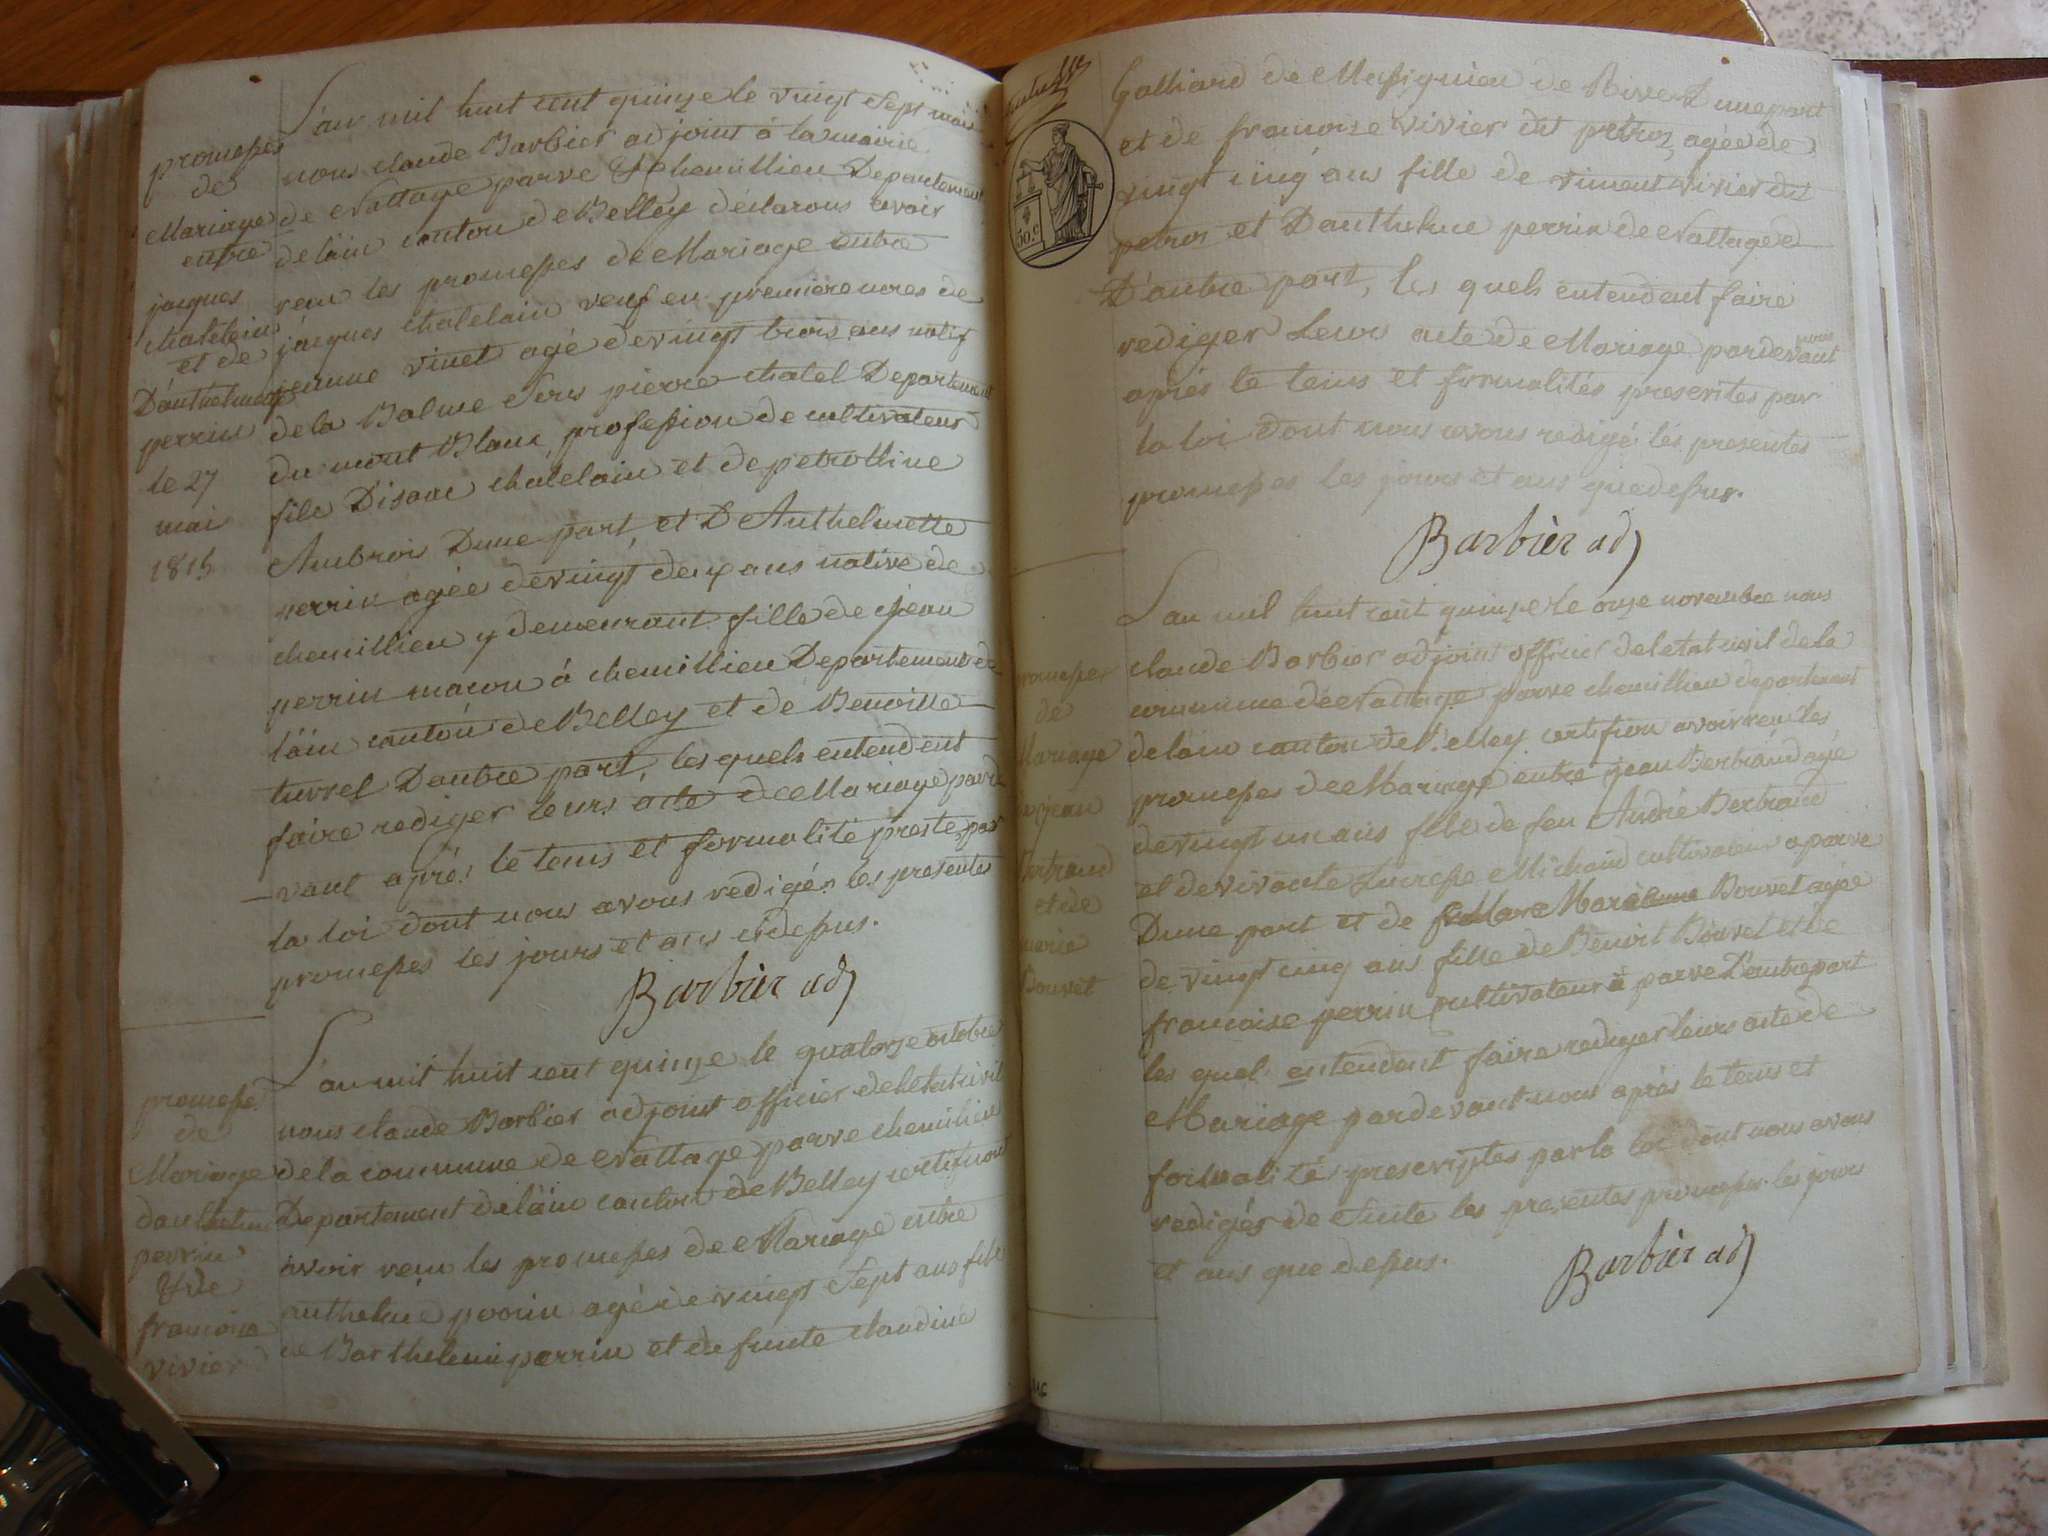 promesses
de
Mariage
entre
jacques
chatelain
et de
D'anthelmette
perrin
le 27
mai
1815
L'an mil huit cent quinze le vingt sept mai
nous claude Barbier adjoint à la mairie
de Nattage parve & chemillieu Departement
de lain canton de Belley déclarons avoir
recu les promesses de Mariage entre
jacques chatelain veuf en premiere noces de
jeanne vinet agé de vingt trois ans natif
de la Balme sous pierre chatel Departement
du mont Blanc, profession de cultivateur
fils D'isaac chatelain et de petrolline
Ambrois Dune part, et D'Anthelmette
perrin agée de vingt deux ans native de
chemillieu y demeurant fille de jean
perrin macon á chemillieu Departement de
lain canton de Belley et de Benoitte
turrel D'autre part, les quels entendent
faire rediger leurs acte de Mariage parde
vant après le tems et formalité preste par
la loi dont nous avons redigés les presentes
promesses les jours et ans cidessus.
Barbier adj
promesse
de
Mariage
danthelme
perrin
& de
francoise
vivier
L'an mil huit cent quinze le quatorze octobre
nous claude Barbier adjoint officier de letat civil
de la commune de Nattage parve chemillieu
Departement de lain canton de Belley certifions
avoir recu les promesses de Mariage entre
anthelme perrin agé de vingt sept ans fils
de Barthelemi perrin et de funte claudine
50.c
Galliard de Massignieu de Rive Dune part
et de francoise vivier dit petroz, agée de
vingt cinq ans fille de vincent vivier dit
petroz et D'anthelme perrin de Nattage
D'autre part, les quels entendent faire
rediger leurs acte de Mariage pardevant nous
aprés le tems et formalités prescrites par
la loi dont nous avons redigé les presentes
promesses les jours et ans que dessus.
Barbier adj
promesses
de
Mariage
de jean
Bertrand
et de
marie
Bouvet
L'an mil huit cent quinze le onze novembre nous
claude Barbier adjoint officier de letat civil de la
commune de Nattage parve chemillieu departement
de lain canton de Belley certifion avoir recu les
promesses de Mariage entre jean Bertrand agé
de vingt un ans fils de feu André Bertrand
et de vivante Lucresse Michaud cultivateur a parve
Dune part et de Marianne Bouvet agée
de vingt cinq ans fille de Benoit Bouvet et de
francoise perrin cultivateur à parve D'autre part
les quel entendent faire rediger leurs acte de
Mariage pardevant nous après le tems et
formalités prescriptes par la loi dont nous avons
redigés de suite les presentes promesses les jours
et ans que dessus.
Barbier adj